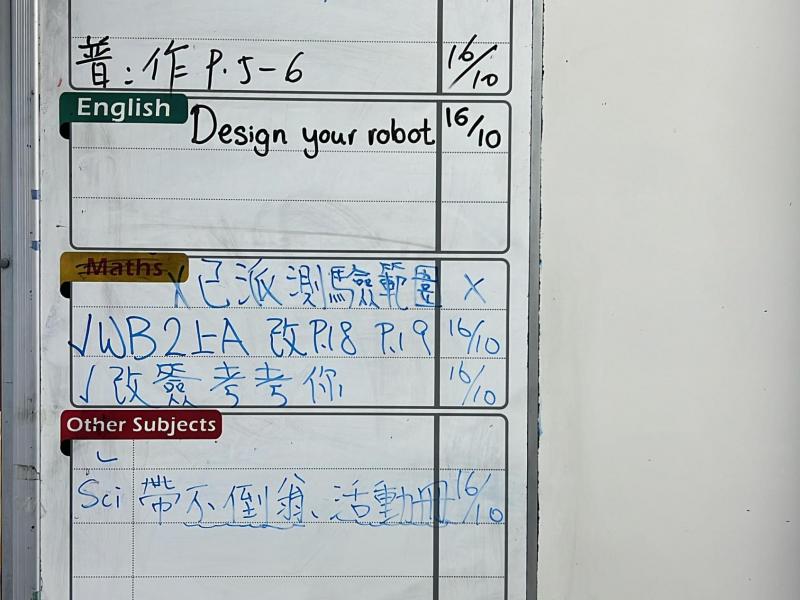 普：作 P.5-6 16/10
English
Design your robot 16/10
Maths
X 已派測驗範圍 X
√ WB2上A 改P.18 P.19 16/10
√ 改簽考考你 16/10
Other Subjects
Sci 帶不倒翁、活動冊 16/10